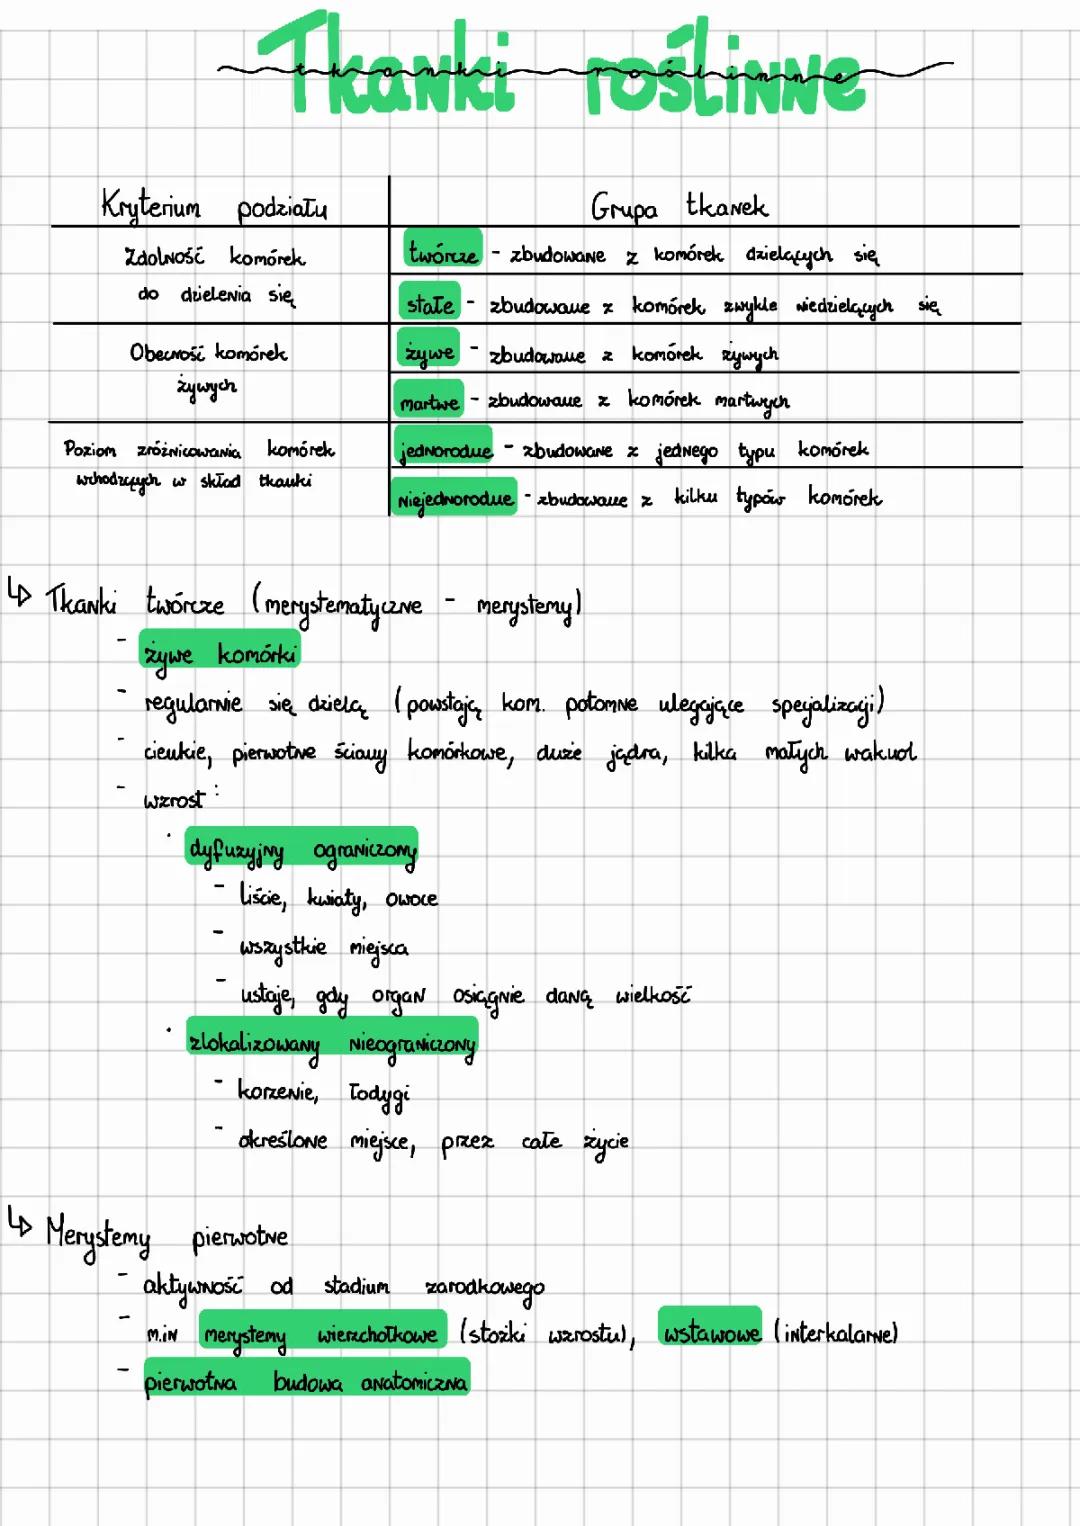 Tkanki roślinne
tkanki roślinne
Kryterium podziału
Grupa tkanek
Zdolność komórek
do dzielenia się
twórcze - zbudowane z komórek dzielących się
stałe - zbudowane z komórek zwykle niedzielących się
Obecność komórek
żywych
żywe - zbudowane z komórek żywych
martwe - zbudowane z komórek martwych
Poziom zróżnicowania komórek
wchodzących w skład tkanki
jednorodne - zbudowane z jednego typu komórek
niejednorodne - zbudowane z kilku typów komórek
↳ Tkanki twórcze (merystematyczne - merystemy)
- żywe komórki
- regularnie się dzielą (powstają kom. potomne ulegające specjalizacji)
- cienkie, pierwotne ściany komórkowe, duże jądra, kilka małych wakuol
- wzrost:
· dyfuzyjny ograniczony
- liście, kwiaty, owoce
- wszystkie miejsca
- ustaje, gdy organ osiągnie daną wielkość
· zlokalizowany nieograniczony
- korzenie, łodygi
- określone miejsce, przez całe życie
↳ Merystemy pierwotne
- aktywność od stadium zarodkowego
- m.in merystemy wierzchołkowe (stożki wzrostu), wstawowe (interkalarne)
- pierwotna budowa anatomiczna